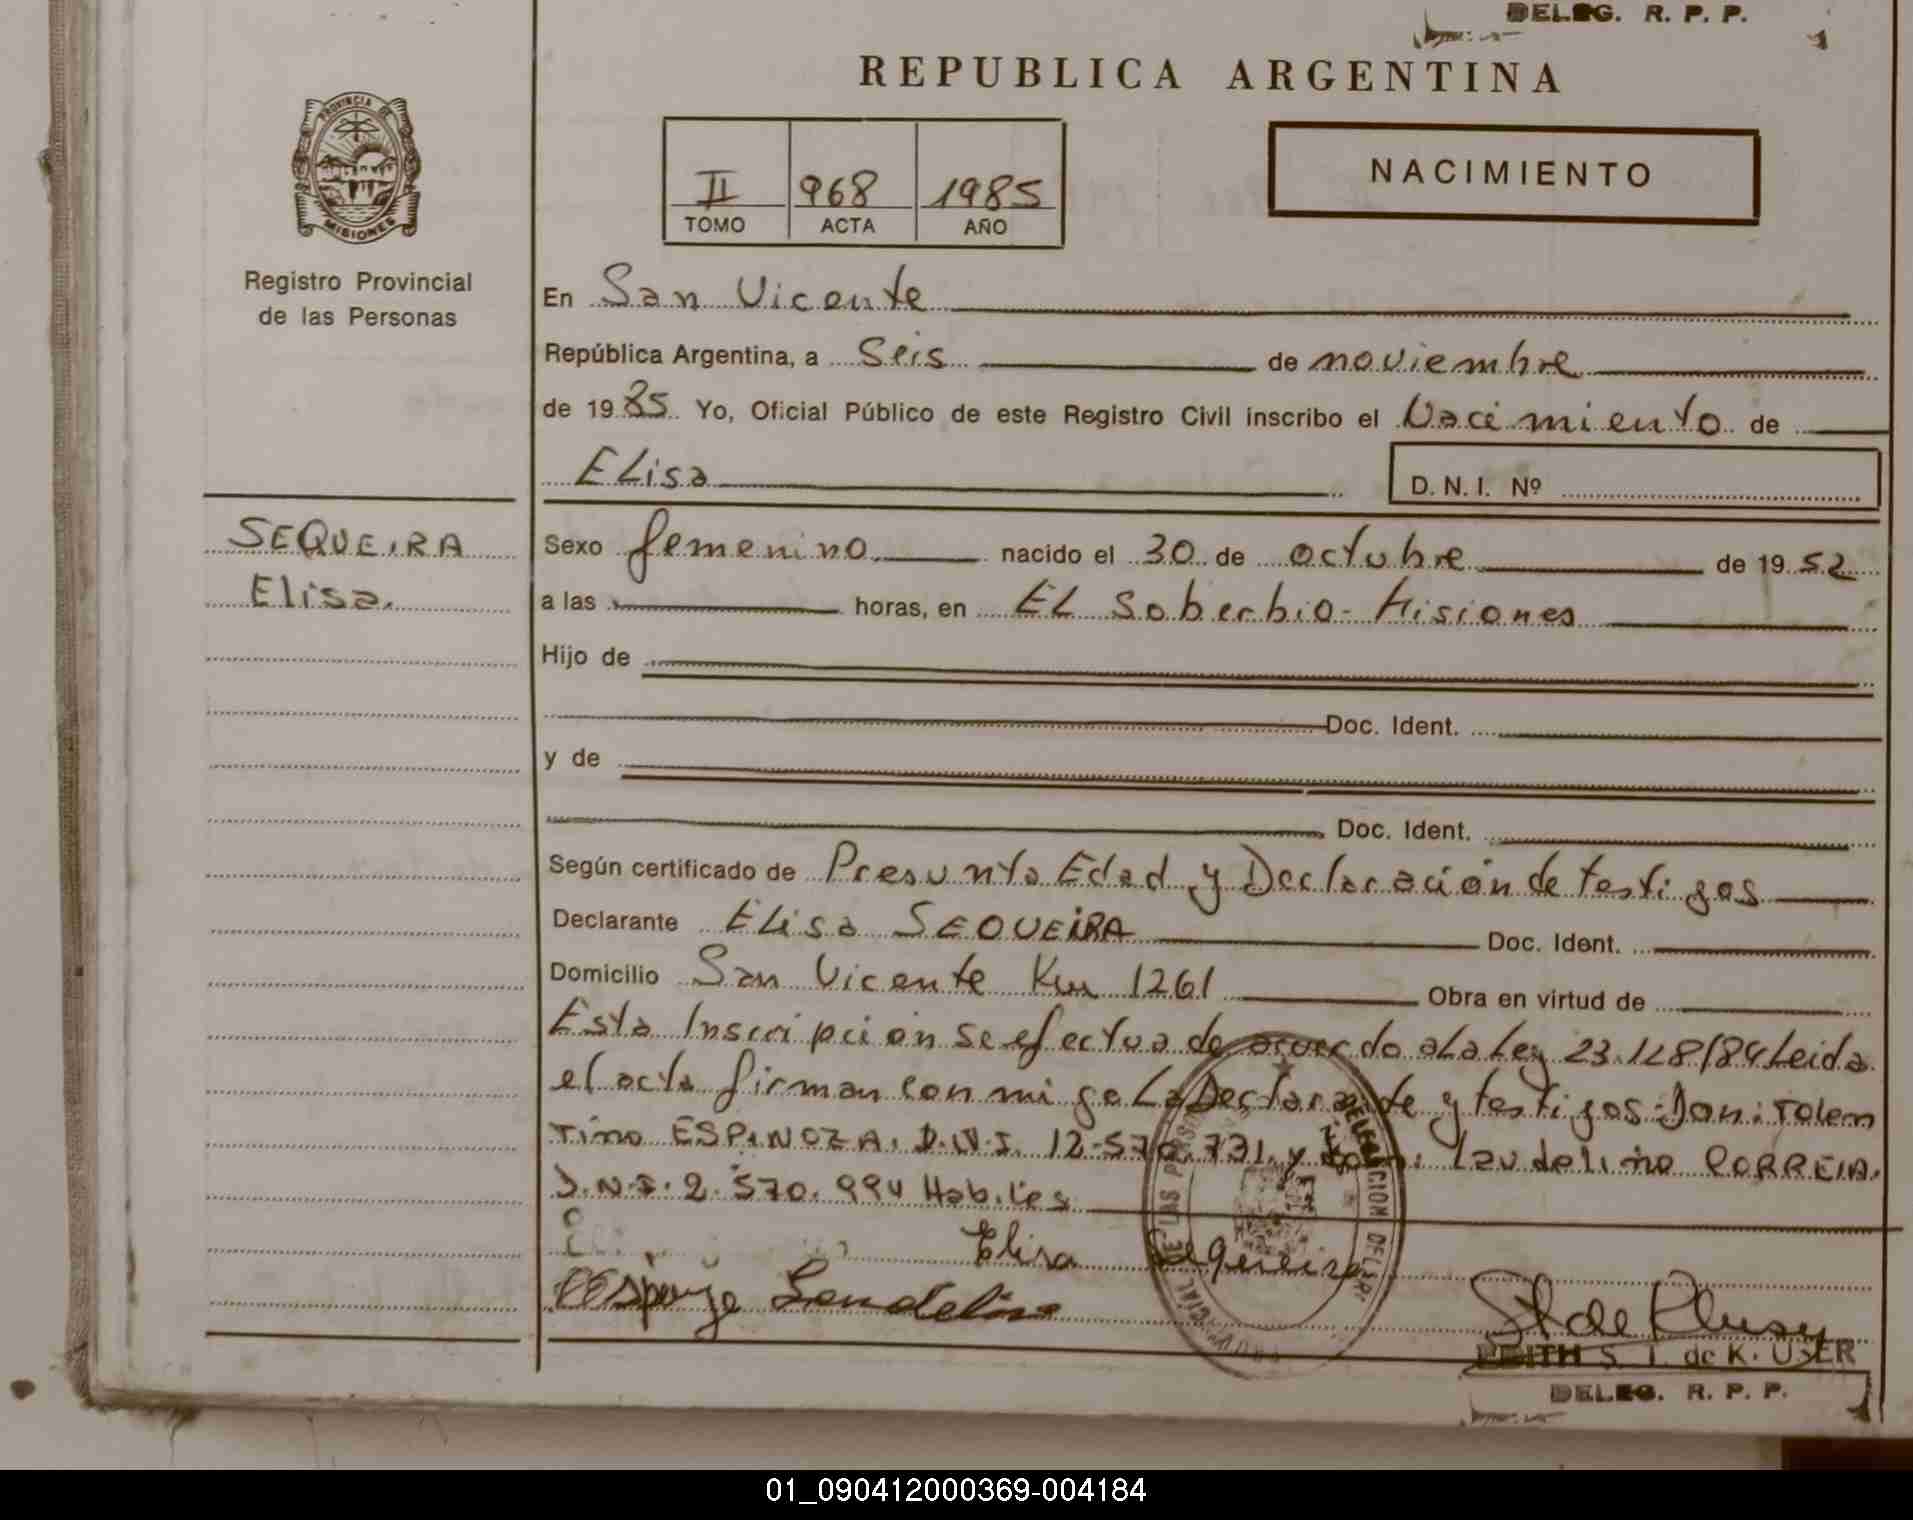 DELEG. R. P. P.
REPUBLICA ARGENTINA
PROVINCIA DE
MISIONES
II 968 1985
TOMO ACTA AÑO
NACIMIENTO
Registro Provincial
de las Personas
En San Vicente
República Argentina, a Seis de noviembre
de 1985 Yo, Oficial Público de este Registro Civil inscribo el Nacimiento de
Elisa D. N. I. Nº
SEQUEIRA
Elisa.
Sexo femenino nacido el 30 de octubre de 1952
a las horas, en EL Soberbio - Misiones
Hijo de
Doc. Ident.
y de
Doc. Ident.
Según certificado de Presunta Edad y Declaración de testigos
Declarante Elisa SEQUEIRA Doc. Ident.
Domicilio San Vicente Km 1261 Obra en virtud de
Esta Inscripción se efectua de acuerdo a La Ley 23.128/84 Leida
el acta firman conmigo La Declarante y testigos: Don: Tolen
tino ESPINOZA, D.N.I. 12.570.731. y Don: Laudelino CORREIA.
D.N.I. 2.570.994 Habiles
Elisa Sequeira
Laudelino
EDITH S. T. de K. USER
DELEG. R. P. P.
01_090412000369-004184